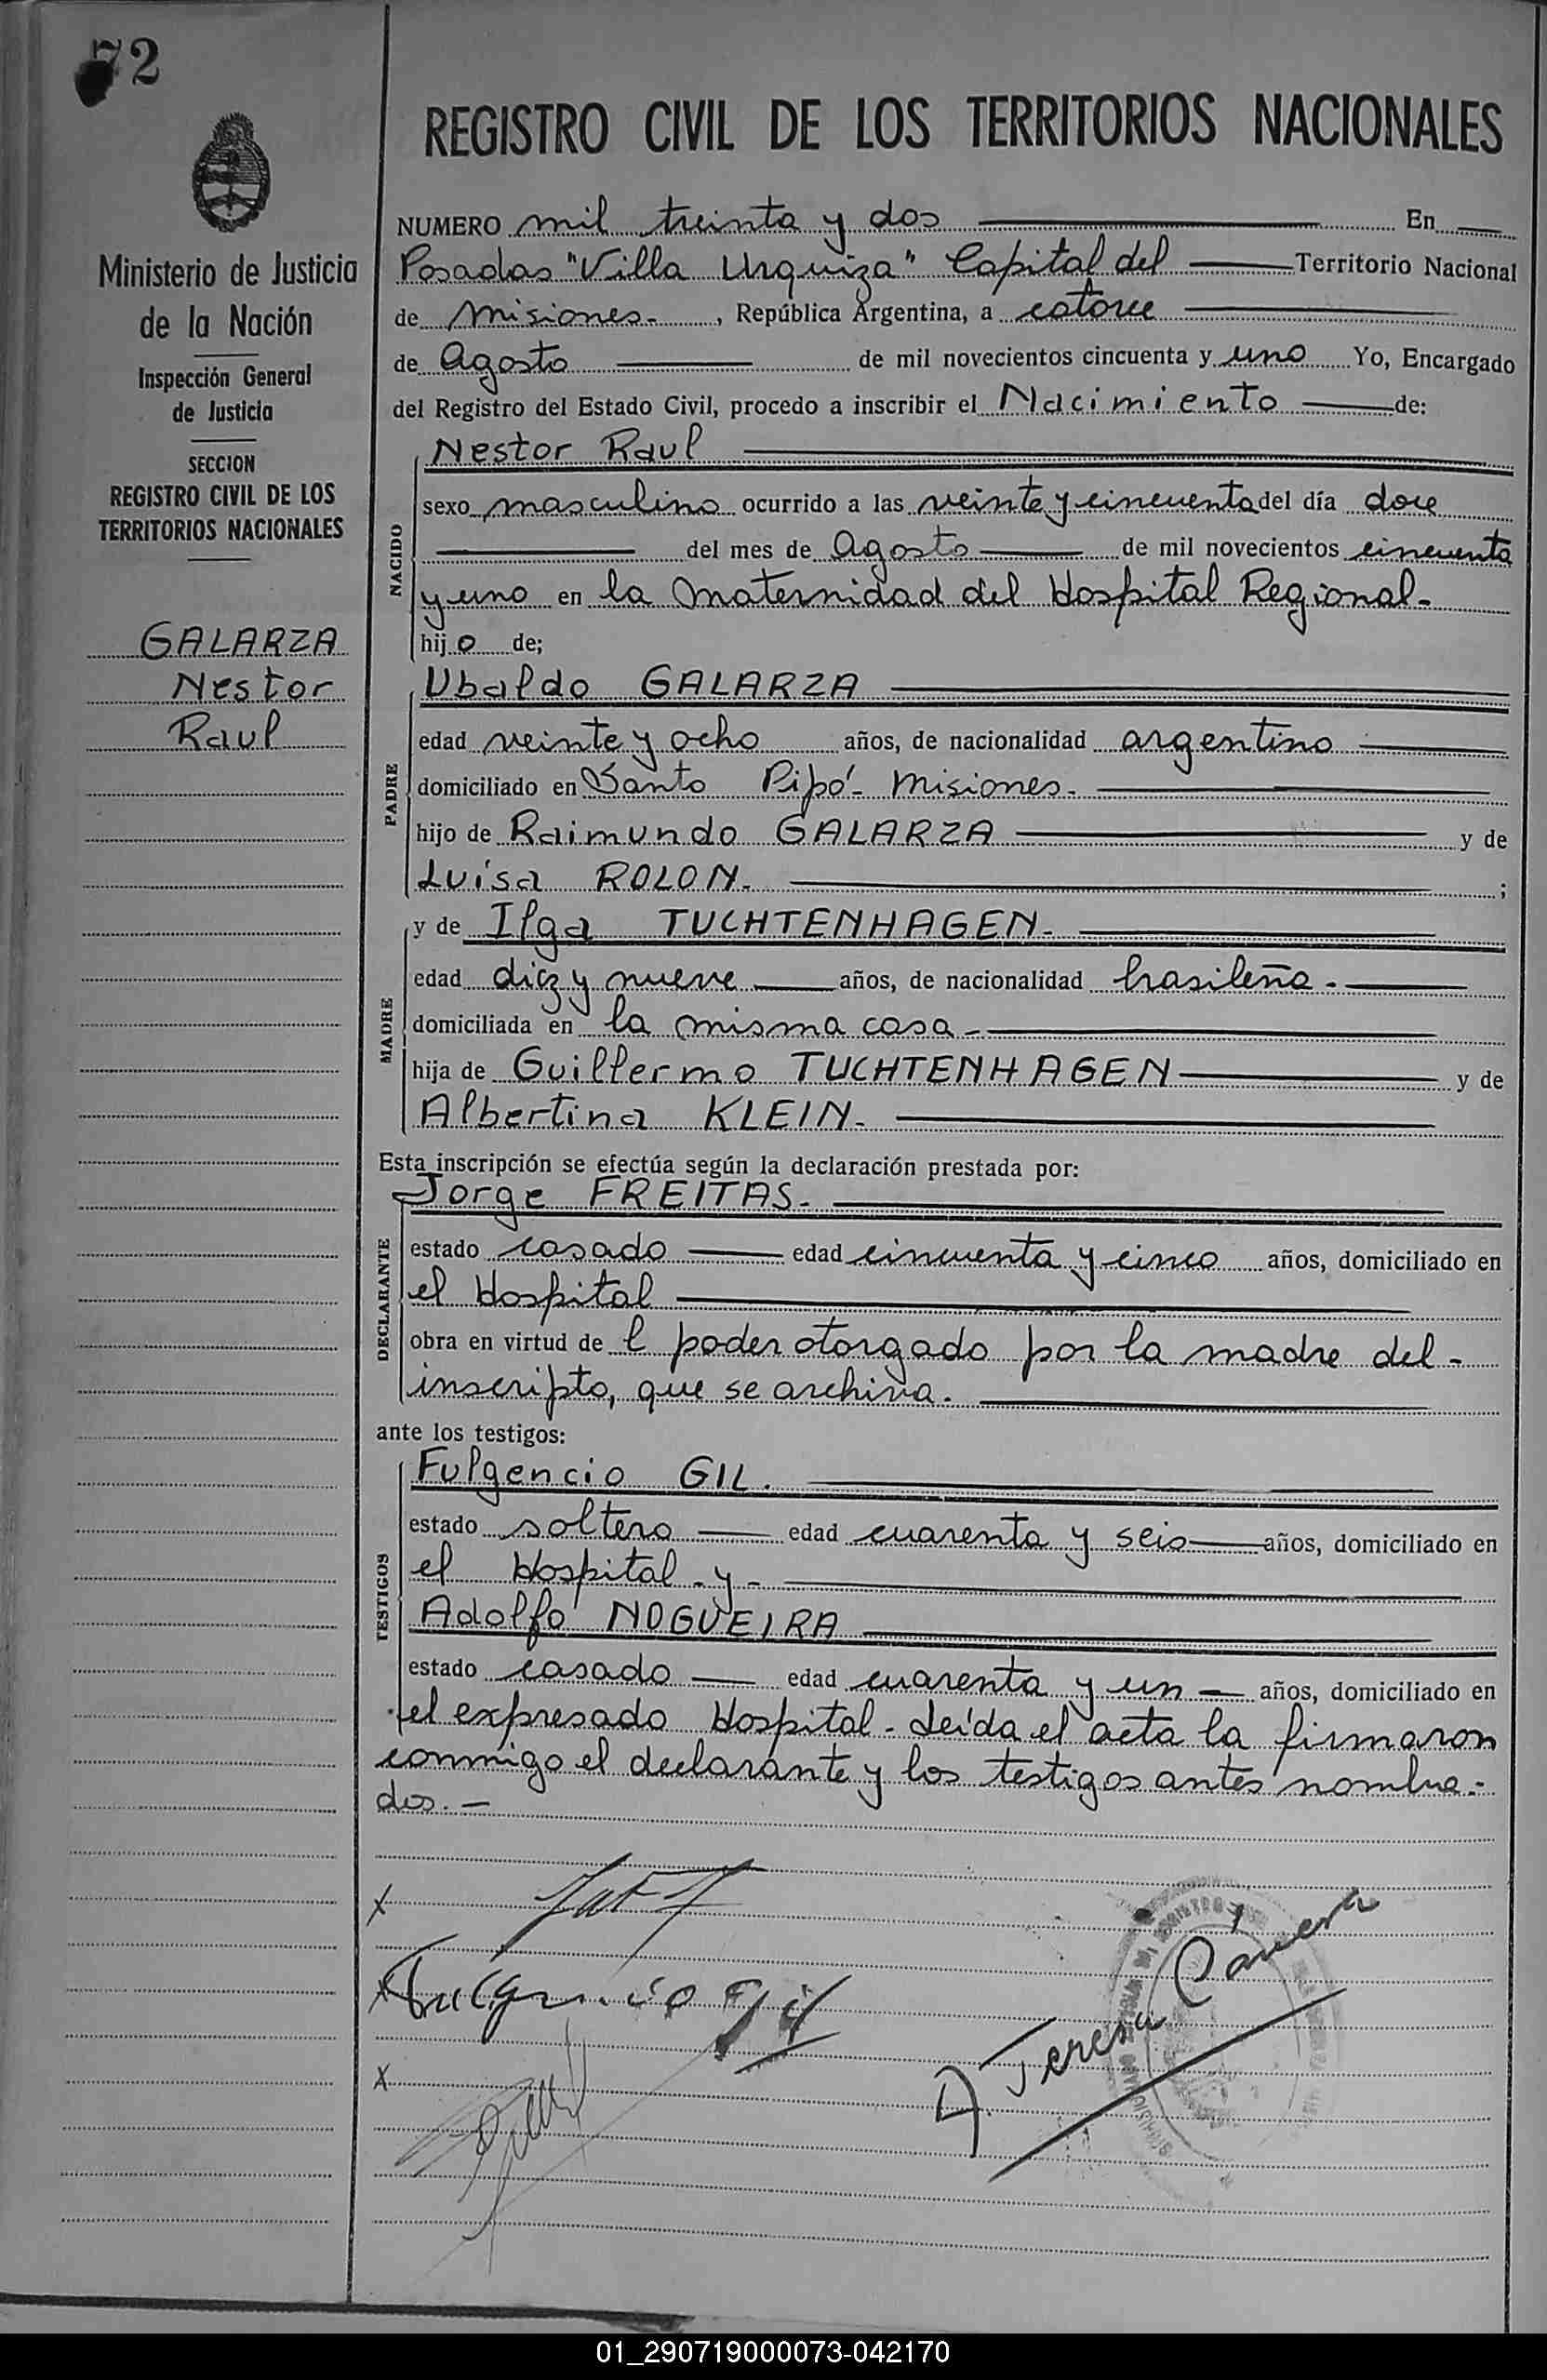 72
REGISTRO CIVIL DE LOS TERRITORIOS NACIONALES
Ministerio de Justicia
de la Nación
Inspección General
de Justicia
SECCION
REGISTRO CIVIL DE LOS
TERRITORIOS NACIONALES
GALARZA
Nestor
Raul
NUMERO mil treinta y dos En
Posadas "Villa Urquiza" Capital del Territorio Nacional
de Misiones- , República Argentina, a catorce
de Agosto de mil novecientos cincuenta y uno Yo, Encargado
del Registro del Estado Civil, procedo a inscribir el Nacimiento de:
NACIDO
Nestor Raul
sexo masculino ocurrido a las veinte y cincuenta del día doce
del mes de Agosto de mil novecientos cincuenta
y uno en la Maternidad del Hospital Regional-
hijo de;
PADRE
Ubaldo GALARZA
edad veinte y ocho años, de nacionalidad argentino
domiciliado en Santo Pipó- Misiones-
hijo de Raimundo GALARZA y de
Luísa ROLON- ;
MADRE
y de Ilga TUCHTENHAGEN-
edad diez y nueve años, de nacionalidad brasileña-
domiciliada en la misma casa-
hija de Guillermo TUCHTENHAGEN y de
Albertina KLEIN-
Esta inscripción se efectúa según la declaración prestada por:
DECLARANTE
Jorge FREITAS-
estado casado edad cincuenta y cinco años, domiciliado en
el Hospital
obra en virtud de l poder otorgado por la madre del-
inscripto, que se archiva.
ante los testigos:
TESTIGOS
Fulgencio GIL.
estado soltero edad cuarenta y seis años, domiciliado en
el Hospital-y-
Adolfo NOGUEIRA
estado casado edad cuarenta y un años, domiciliado en
el expresado Hospital- Leída el acta la firmaron
conmigo el declarante y los testigos antes nombra-
dos.-
x
x Fulgencio Gil
x
A. Teresa
01_290719000073-042170